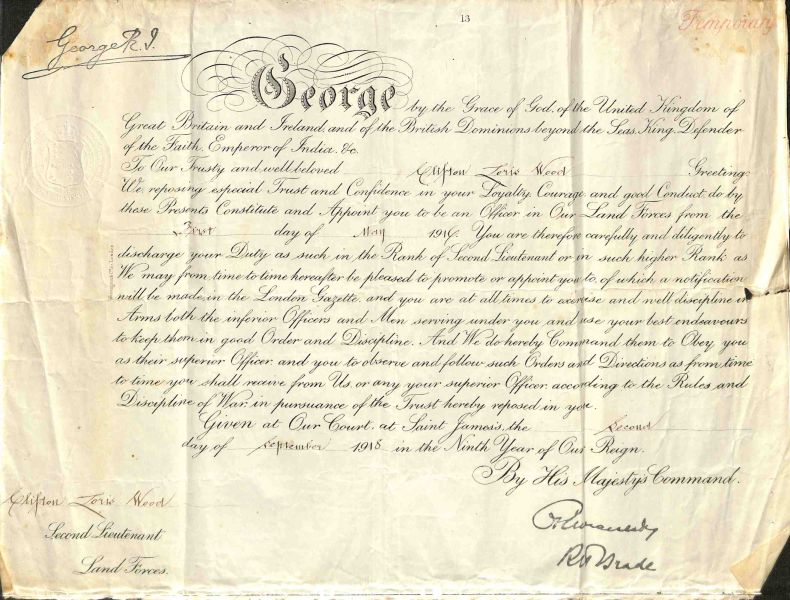 13
Temporary
George R. I.
George by the Grace of God, of the United Kingdom of
Great Britain and Ireland, and of the British Dominions beyond the Seas, King, Defender
of the Faith, Emperor of India, &c.
To Our Trusty and well beloved Clifton Loris Wood Greeting:
We, reposing especial Trust and Confidence in your Loyalty, Courage, and good Conduct, do by
these Presents Constitute and Appoint you to be an Officer in Our Land Forces from the
First day of May 191 . You are therefore carefully and diligently to
discharge your Duty as such in the Rank of Second Lieutenant or in such higher Rank as
We may from time to time hereafter be pleased to promote or appoint you to, of which a notification
will be made in the London Gazette, and you are at all times to exercise and well discipline in
Arms both the inferior Officers and Men serving under you and use your best endeavours
to keep them in good Order and Discipline. And We do hereby Command them to Obey you
as their superior Officer, and you to observe and follow such Orders and Directions as from time
to time you shall receive from Us, or any your superior Officer, according to the Rules and
Discipline of War, in pursuance of the Trust hereby reposed in you.
Given at Our Court, at Saint James's, the Second
day of September 1918 in the Ninth Year of Our Reign.
By His Majesty's Command.
Clifton Loris Wood
Second Lieutenant
Land Forces.
R H Brade